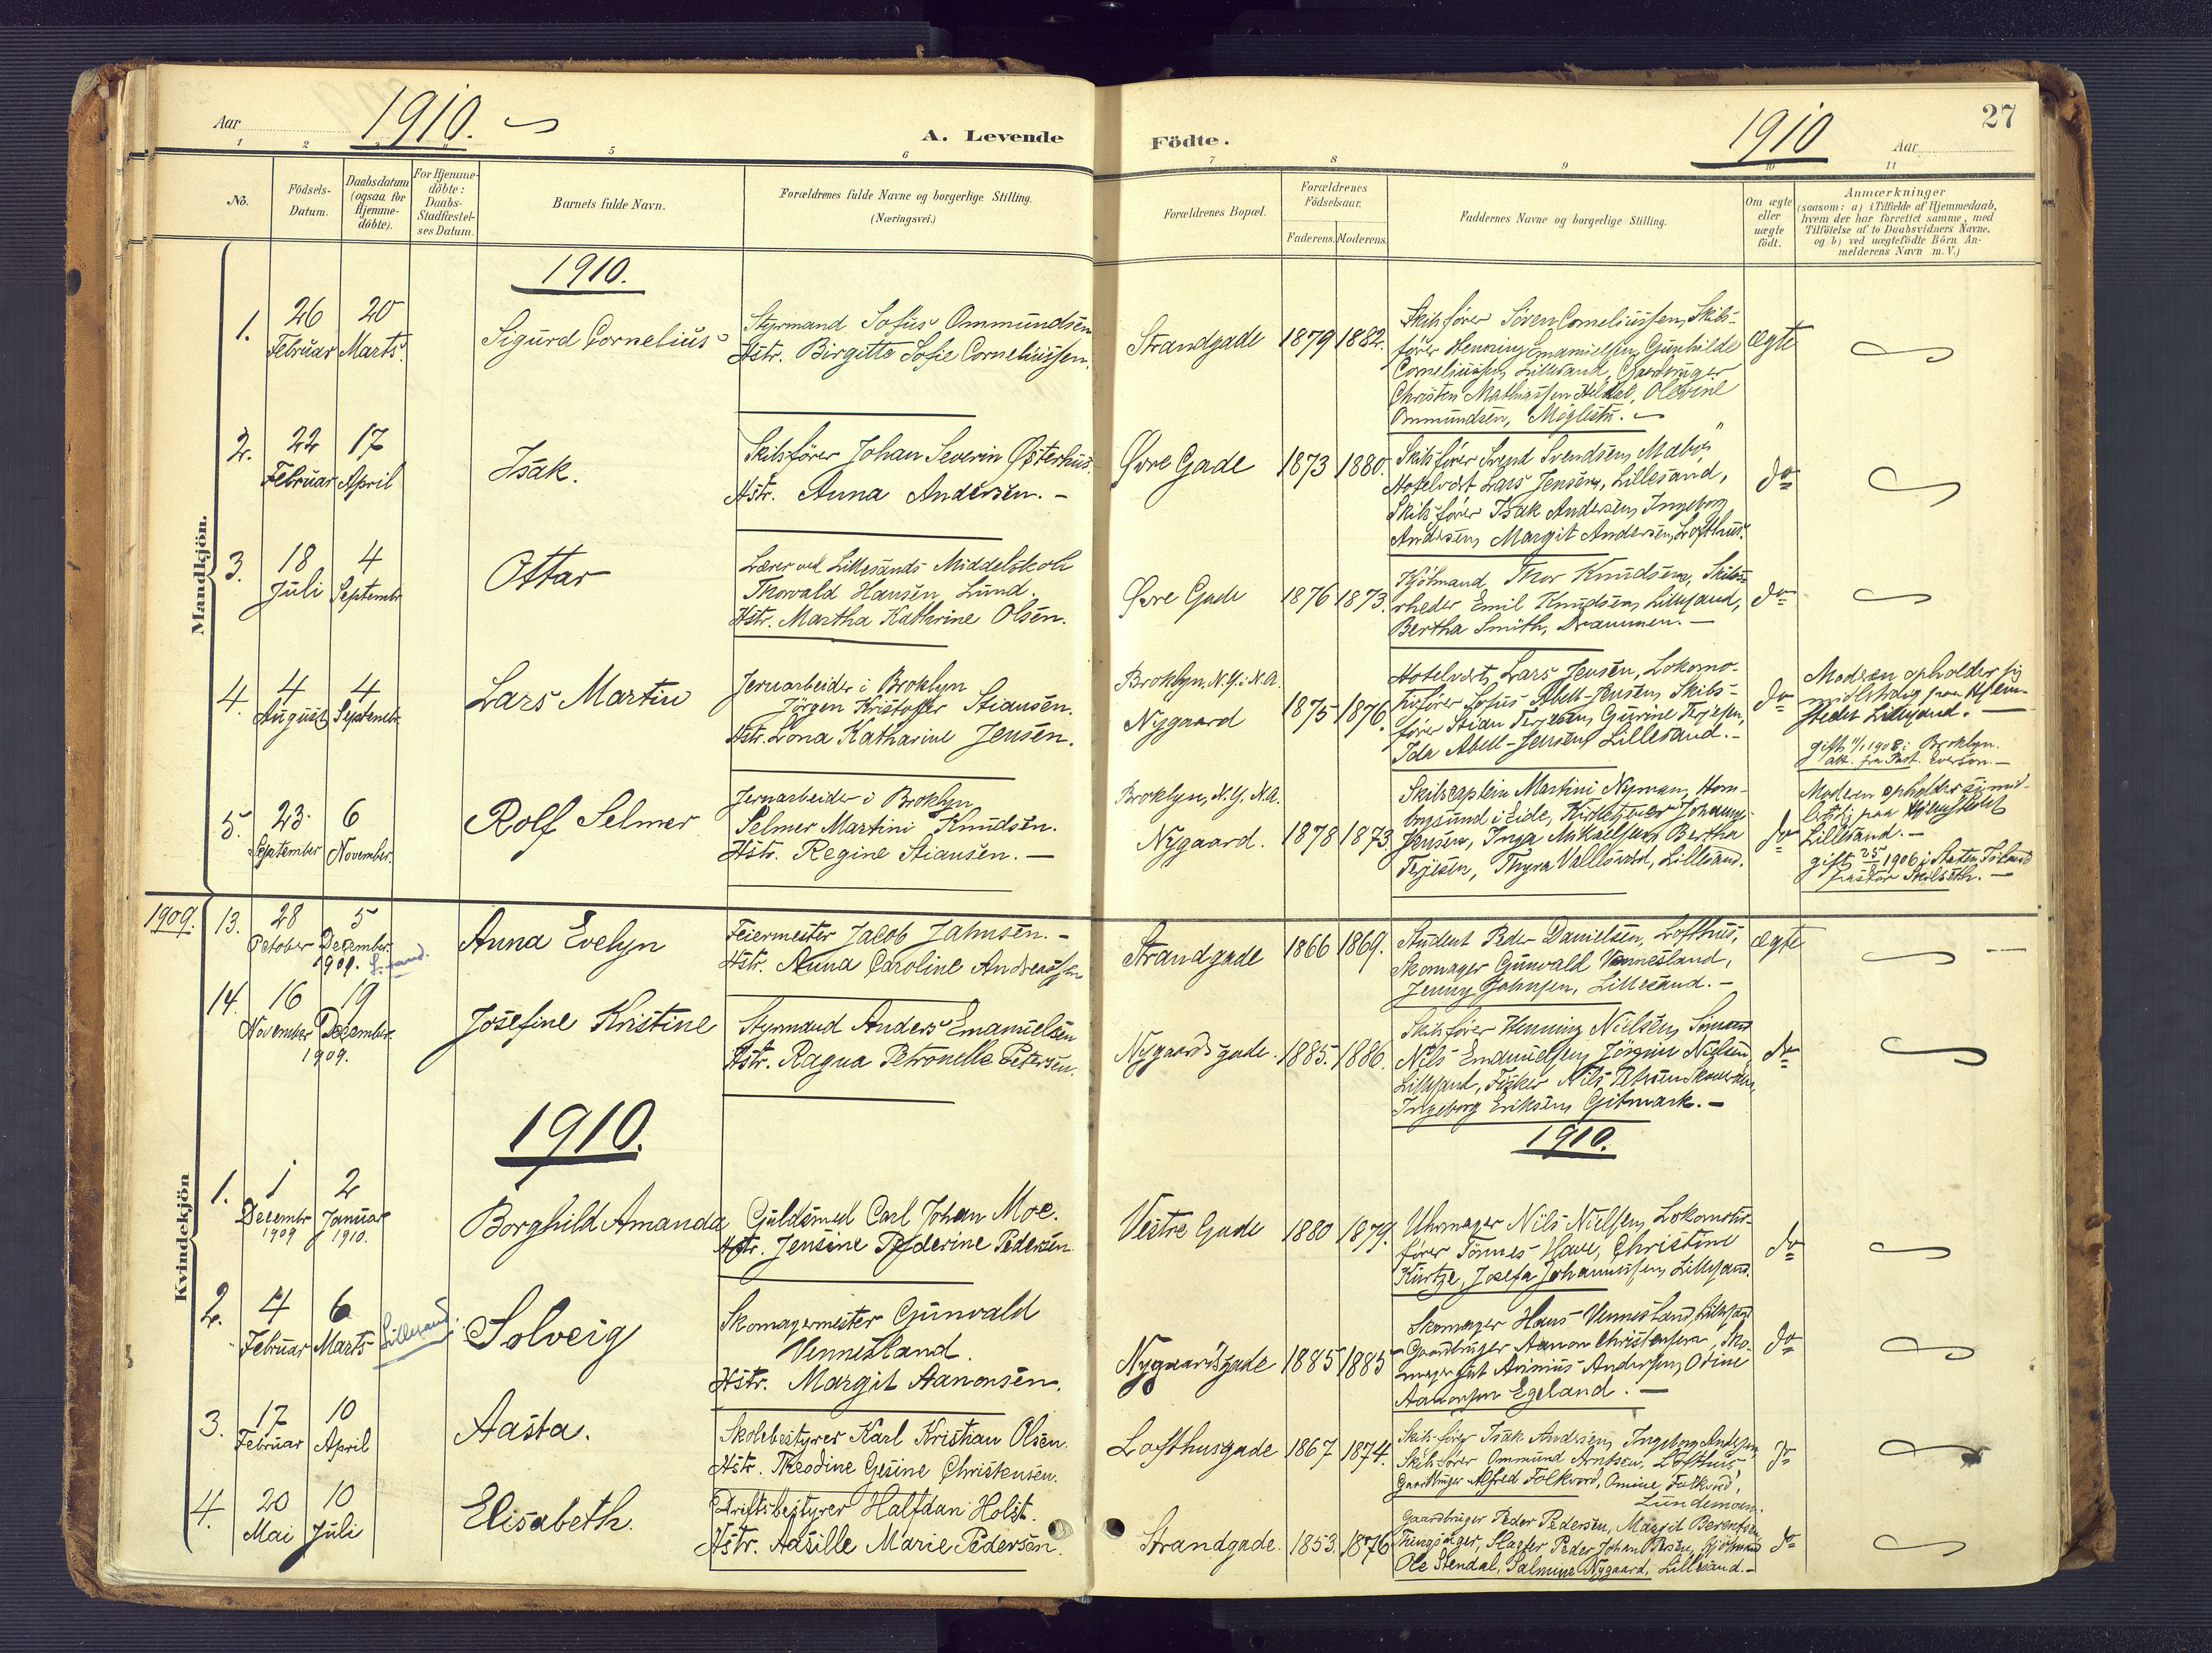 Aar 1910.
A. Levende
1 2 3 4 5 6
No.
Födsels-
Datum.
Daabsdatum
(ogsaa for
Hjemme-
döbte).
For Hjemme-
döbte:
Daabs-
Stadfæstel-
ses Datum.
Barnets fulde Navn.
Forældrenes fulde Navne og borgerlige Stilling.
(Næringsvei.)
Mandkjön.
1910.
1. 26 Februar 20 Marts.
Sigurd Cornelius
Styrmand Sofus Ommundsen
Hstr. Birgitte Sofie Corneliussen.
2. 22 Februar 17 April
Isak.
Skibsfører Johan Severin Østerhus.
Hstr. Anna Andersen. -
3. 18 Juli 4 Septembr
Ottar
Lærer ved Lillesands Middelskole
Thorvald Hansen Lund.
Hstr. Martha Kathrine Olsen.
4. 4 August 4 Septembr.
Lars Martin
Jernarbeider i Broklyn
Jörgen Kristofer Stiansen.
Hstr. Lona Katharine Jensen.
5. 23. September 6 November.
Rolf Selmer
Jernarbeider i Broklyn
Selmer Martini Knudsen.
Hstr. Regine Stiansen. -
Kvindekjön
1909. 13. 28 October 5 December. 1909. L.sand.
Anna Evelyn
Feiermester Jacob Jahnsen. -
Hstr. Anna Caroline Andreassen
14. 16 November 19 December. 1909.
Josefine Kristine
Styrmand Anders Emanuelsen
Hstr. Ragna Petronelle Petersen.
1910.
1. 1 Decembr 1909 2 Januar 1910.
Borghild Amanda
Guldsmed Carl Johan Moe.
Hstr. Jensine Pederine Pedersen
2. 4 Februar 6 Marts Lillesand.
Solveig
Skomagermester Gunvald
Vennesland.
Hstr. Margit Aanonsen.
3. 17 Februar 10 April
Aasta.
Skolebestyrer Karl Kristian Olsen.
Hstr. Theodine Gesine Christensen.
4. 20 Mai 10 Juli
Elisabeth.
Driftsbestyrer Halfdan Holst.
Hstr. Aasille Marie Pedersen.
Födte.
1910 Aar
27
7 8 9 10 11
Forældrenes Bopæl.
Forældrenes
Födselsaar.
Faderens. Moderens.
Faddernes Navne og borgerlige Stilling.
Om ægte
eller
uægte
födt.
Anmærkninger
(saasom: a) i Tilfælde af Hjemmedaab,
hvem der har forrettet samme, med
Tilföielse af to Daabsvidners Navne,
og b) ved uægtefödte Börn An-
melderens Navn m. V.)
Strandgade 1879 1882.
Skibsfører Søren Corneliussen, Skibs-
fører Henning Emanuelsen, Gunhilde
Corneliussen Lillesand, Gaardbruger
Christen Mathiassen Heldal, Olevine
Ommundsen, Møglestu. -
ægte
Øvre Gade 1873 1880.
Skibsfører Svend Svendsen,
Hotelvert Lars Jensen, Lillesand,
Skibsfører Isak Andersen, Ingeborg
Andersen, Margit Andersen, Lofthus.
do
Øvre Gade 1876 1873.
Kjøbmand Thor Knudsen, Skibs-
rheder Emil Knudsen, Lillesand,
Bertha Smith, Drammen. -
do
Broklyn, N.Y. i N.A.
Nygaard 1875 1876.
Hotelvert Lars Jensen, Lokomo-
tivfører Sofus Abell-Jensen, Skibs-
fører Stian Terjesen, Gurine Terjesen,
Ida Abell-Jensen Lillesand. -
do
Moderen opholder sig
midlertidig paa Hjem-
stedet Lillesand. -
gift 1908 i Broklyn.
att. fra Past. Everson. -
Broklyn, N.Y. N.A.
Nygaard. 1878 1873.
Skibscaptein Martini Nyman, Hom-
borsund i Eide, Kirketjener Johannes
Jensen, Inga Mikaelsen, Bertha
Terjesen, Thyra Vallesverd, Lillesand.
do
Moderen opholder sig mid-
lertidig paa Hjemstedet
Lillesand. -
gift 1906 i Staten Island
pastor
Strandgade 1866 1869.
Student Peder Danielsen, Lofthus,
Skomager Gunvald Vennesland,
Jenny Jahnsen, Lillesand. -
ægte
Nygaardsgade. 1885. 1886.
Skibsfører Henning Nielsen, Sömand
Nils Emanuelsen, Jörgine Nielsen
Lillesand, Fisker Nils Petersen
Ingeborg Eriksen, Gitmark. -
do
1910.
Vestre Gade 1880 1879.
Uhrmager Nils Nielsen, Lokomotiv-
fører Tönnes Have, Christine
Kurtze, Josefa Johannessen, Lillesand.
do
Nygaardsgade 1885 1885
Skomager Hans Vennesland, Lillesand
Gaardbruger Aanon Christensen, Sko-
mager Andersen, Otine
Aanonsen Egeland. -
do
Lofthusgade 1867 1874.
Skibsfører Isak Andersen, Ingeborg Andersen,
Skibsfører Ommund Arntsen, Lofthus
Gaardbruger Alfred Folkvord, Omine Folkvord,
Lundemoen.
do
Strandgade. 1853. 1876
Gaardbruger Peder Pedersen, Margit Berentsen,
Tingsaker, Slagter Peder Johan Olsen, Kjöbmand
Ole Stendal, Salmine Nygaard, Lillesand. -
do